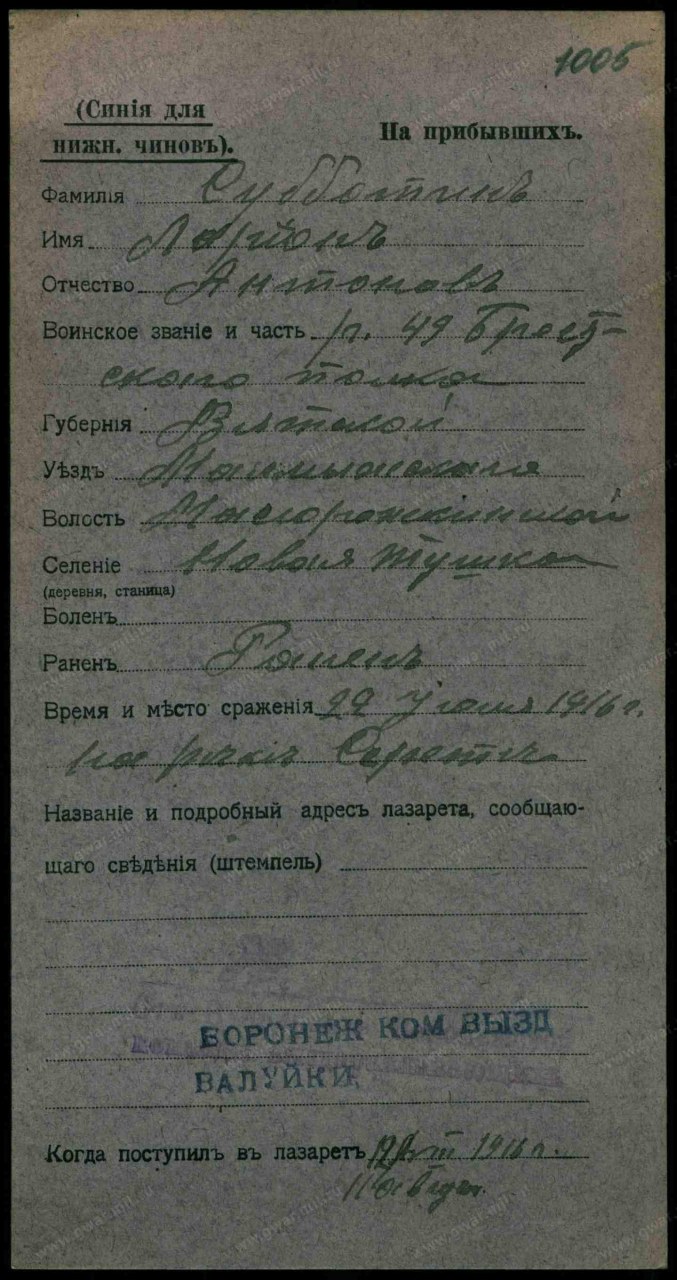 1005
(Синія для
нижн. чиновъ).
На прибывшихъ.
Фамилія Субботинъ
Имя Ларіонъ
Отчество Антоновъ
Воинское званіе и часть р. 49 Брест-
скаго полка
Губернія Вятской
Уѣздъ Малмыжскаго
Волость
Селеніе Новая Тушка
(деревня, станица)
Боленъ
Раненъ Раненъ
Время и мѣсто сраженія 22 Іюля 1916 г.
на рѣкѣ
Названіе и подробный адресъ лазарета, сообщаю-
щаго свѣдѣнія (штемпель)
ВОРОНЕЖ КОМ ВЫЗД
ВАЛУЙКИ
Когда поступилъ въ лазаретъ 1916 г.